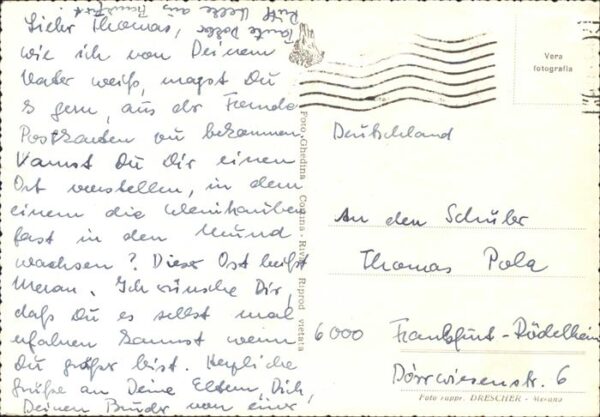 Lieber Thomas,
wie ich von Deinem
Vater weiß, magst Du
es gern, aus der Fremde
Postkarten zu bekommen
Kannst Du Dir einen
Ort vorstellen, in dem
einem die Weintrauben
fast in den Mund
wachsen? Dieser Ort heißt
Meran. Ich wünsche Dir,
daß Du es selbst mal
erfahren kannst wenn
Du größer bist. Herzliche
Grüße an Deine Eltern Dich,
Deinen Bruder von einer
Ruth aus Frankfurt.
Foto Ghedina - Cortina - Riprod vietata
Vera
fotografia
Deutschland
An den Schüler
Thomas Pola
6000 Frankfurt-Rödelheim
Dörrwiesenstr. 6
Foto rappr. DRESCHER - Merano